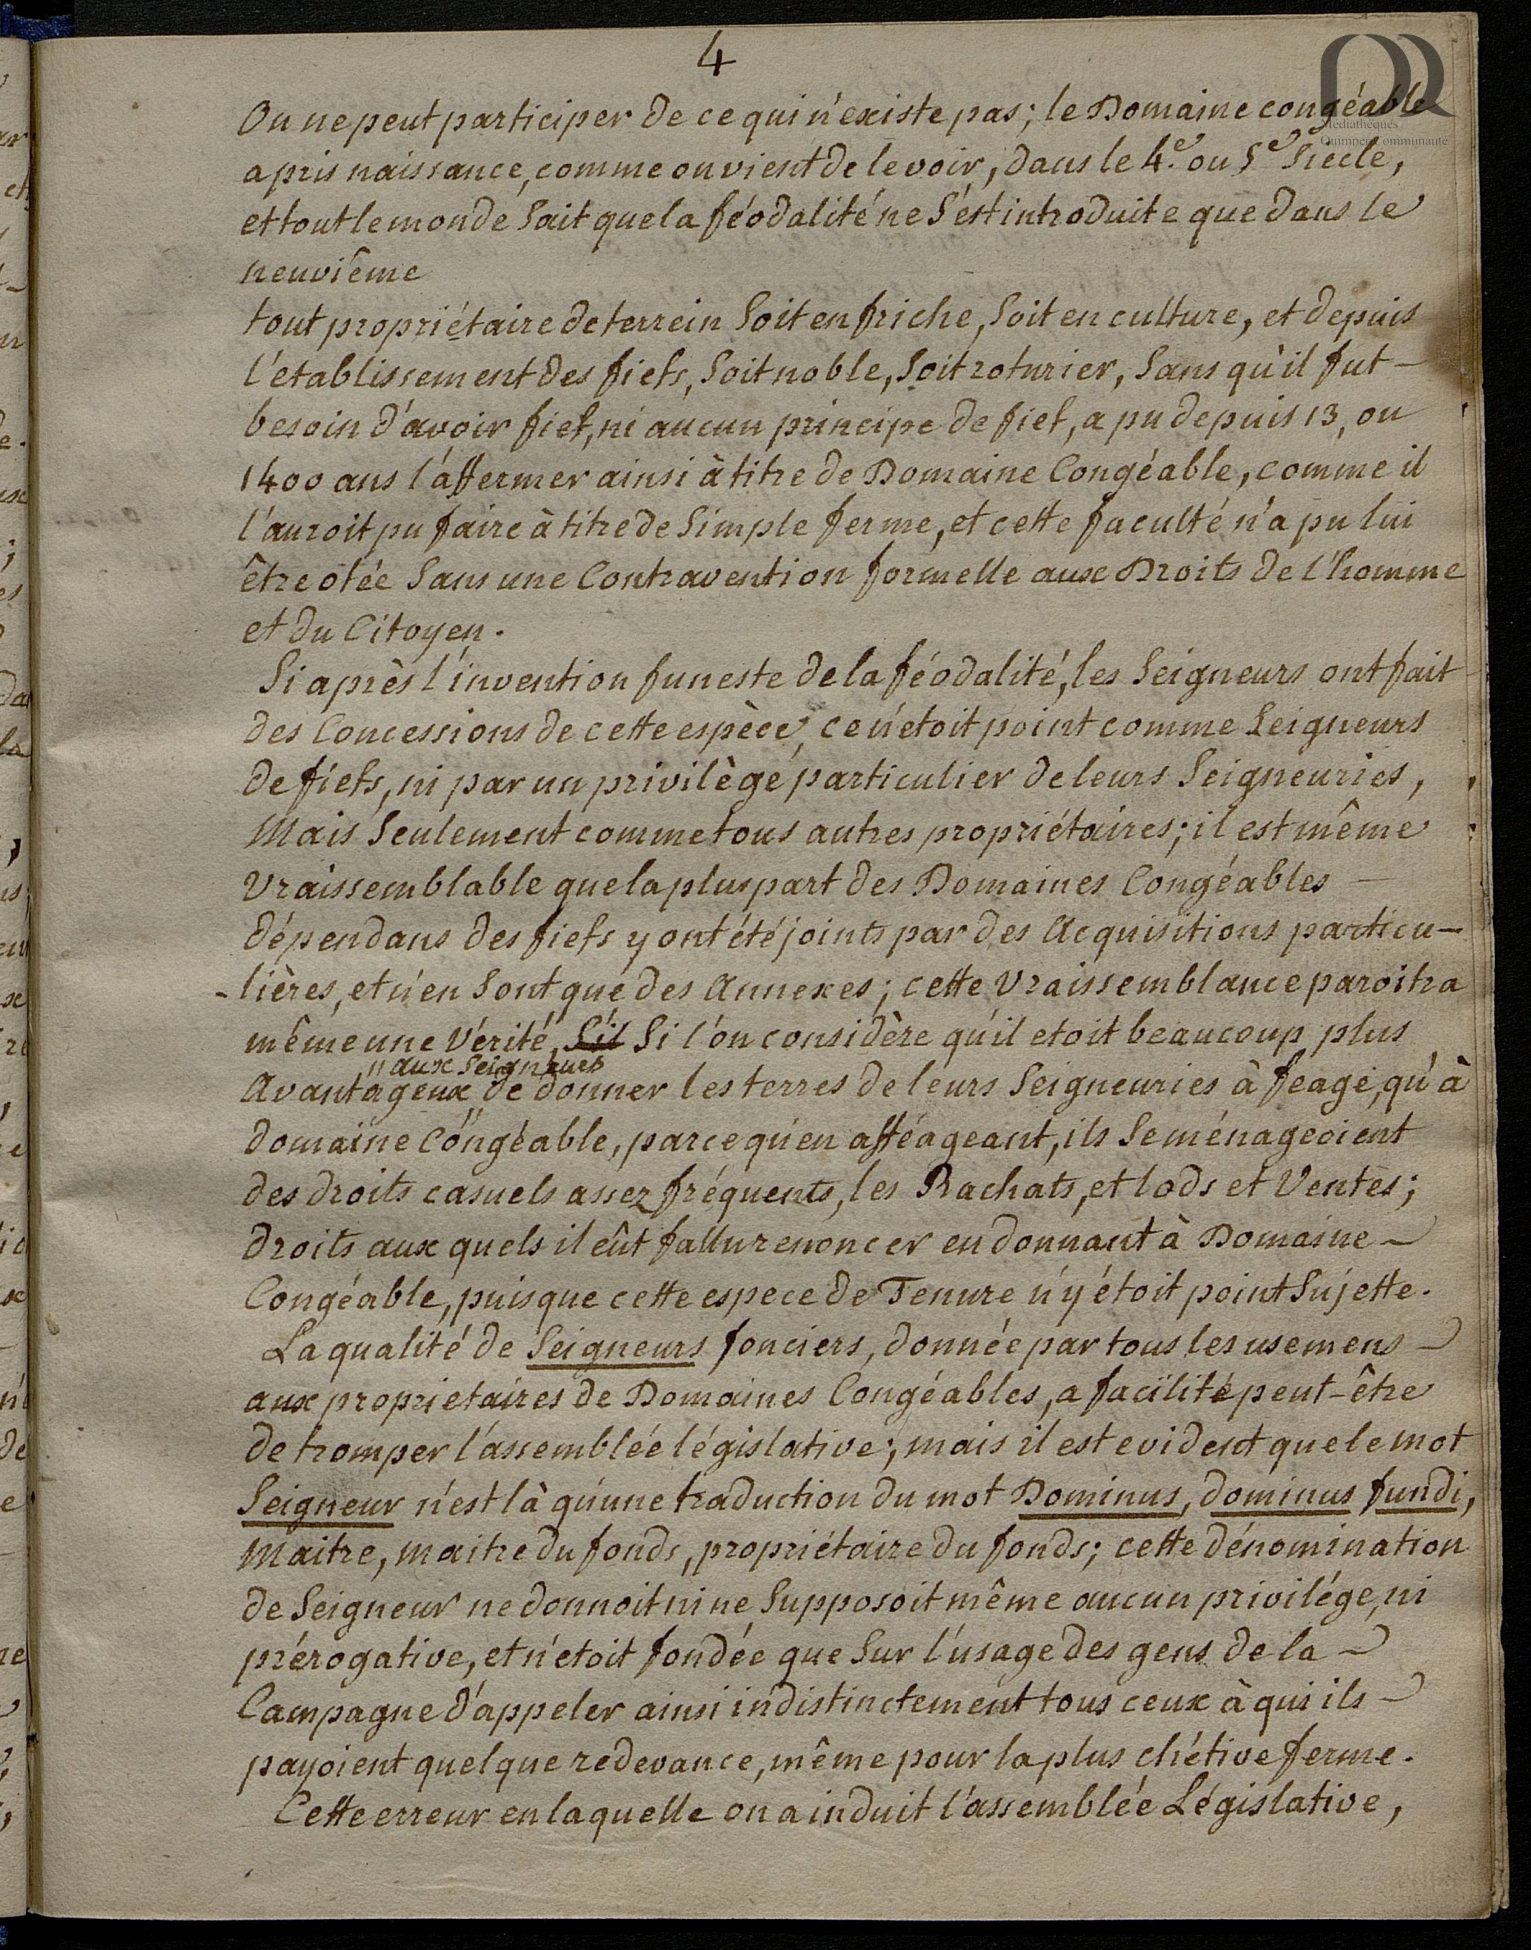 4
On ne peut participer de ce qui n'existe pas ; le Domaine congéable
a pris naissance, comme on vient de le voir, dans le 4.e ou 5e Siecle,
et tout le monde Sait que la féodalité ne S'est introduite que dans le
neuvième
tout propriétaire de terrein Soit en friche, Soit en culture, et depuis
l'etablissement des fiefs, Soit noble, Soit roturier, Sans qu'il fut
besoin d'avoir fief, ni aucun principe de fief, a pu depuis 13, ou
1400 ans l'affermer ainsi à titre de Domaine Congéable, comme il
l'auroit pu faire à titre de Simple ferme, et cette faculté n'a pu lui
être otée Sans une Contravention formelle aux Droits de l'homme
et du Citoyen.
Si après l'invention funeste de la féodalité, les Seigneurs ont fait
des Concessions de cette espèce, ce n'etoit point comme Seigneurs
de fiefs, ni par un privilège particulier de leurs Seigneuries,
Mais Seulement comme tous autres propriétaires ; il est même
Vraissemblable que la pluspart des Domaines Congéables
dépendans des fiefs y ont été joints par des Acquisitions particu-
-lières, et n'en Sont que des Annexes ; cette Vraissemblance paroitra
même une Vérité, S'il Si l'on considère qu'il etoit beaucoup plus
" aux Seigneurs
Avantageux " de donner les terres de leurs Seigneuries à feage, qu'à
domaine Congéable, parce qu'en afféageant, ils Se ménageoient
des droits casuels assez fréquents, les Rachats, et lods et Ventes ;
droits aux quels il eût fallu renoncer en donnant à Domaine
Congéable, puisque cette espece de Tenure n'y étoit point Sujette.
La qualité de Seigneurs fonciers, donnée par tous les usemens
aux proprietaires de Domaines Congéables, a facilité peut-être
de tromper l'assemblée législative ; mais il est evident que le mot
Seigneur n'est là qu'une traduction du mot Dominus, dominus fundi,
Maitre, maitre du fonds, propriétaire du fonds ; cette dénomination
de Seigneur ne donnoit ni ne Supposoit même aucun privilége, ni
prérogative, et n'etoit fondée que Sur l'usage des gens de la
Campagne d'appeler ainsi indistinctement tous ceux à qui ils
payoient quelque redevance, même pour la plus chétive ferme.
Cette erreur en laquelle on a induit l'assemblée Législative,
Médiathèques
Quimper Communauté